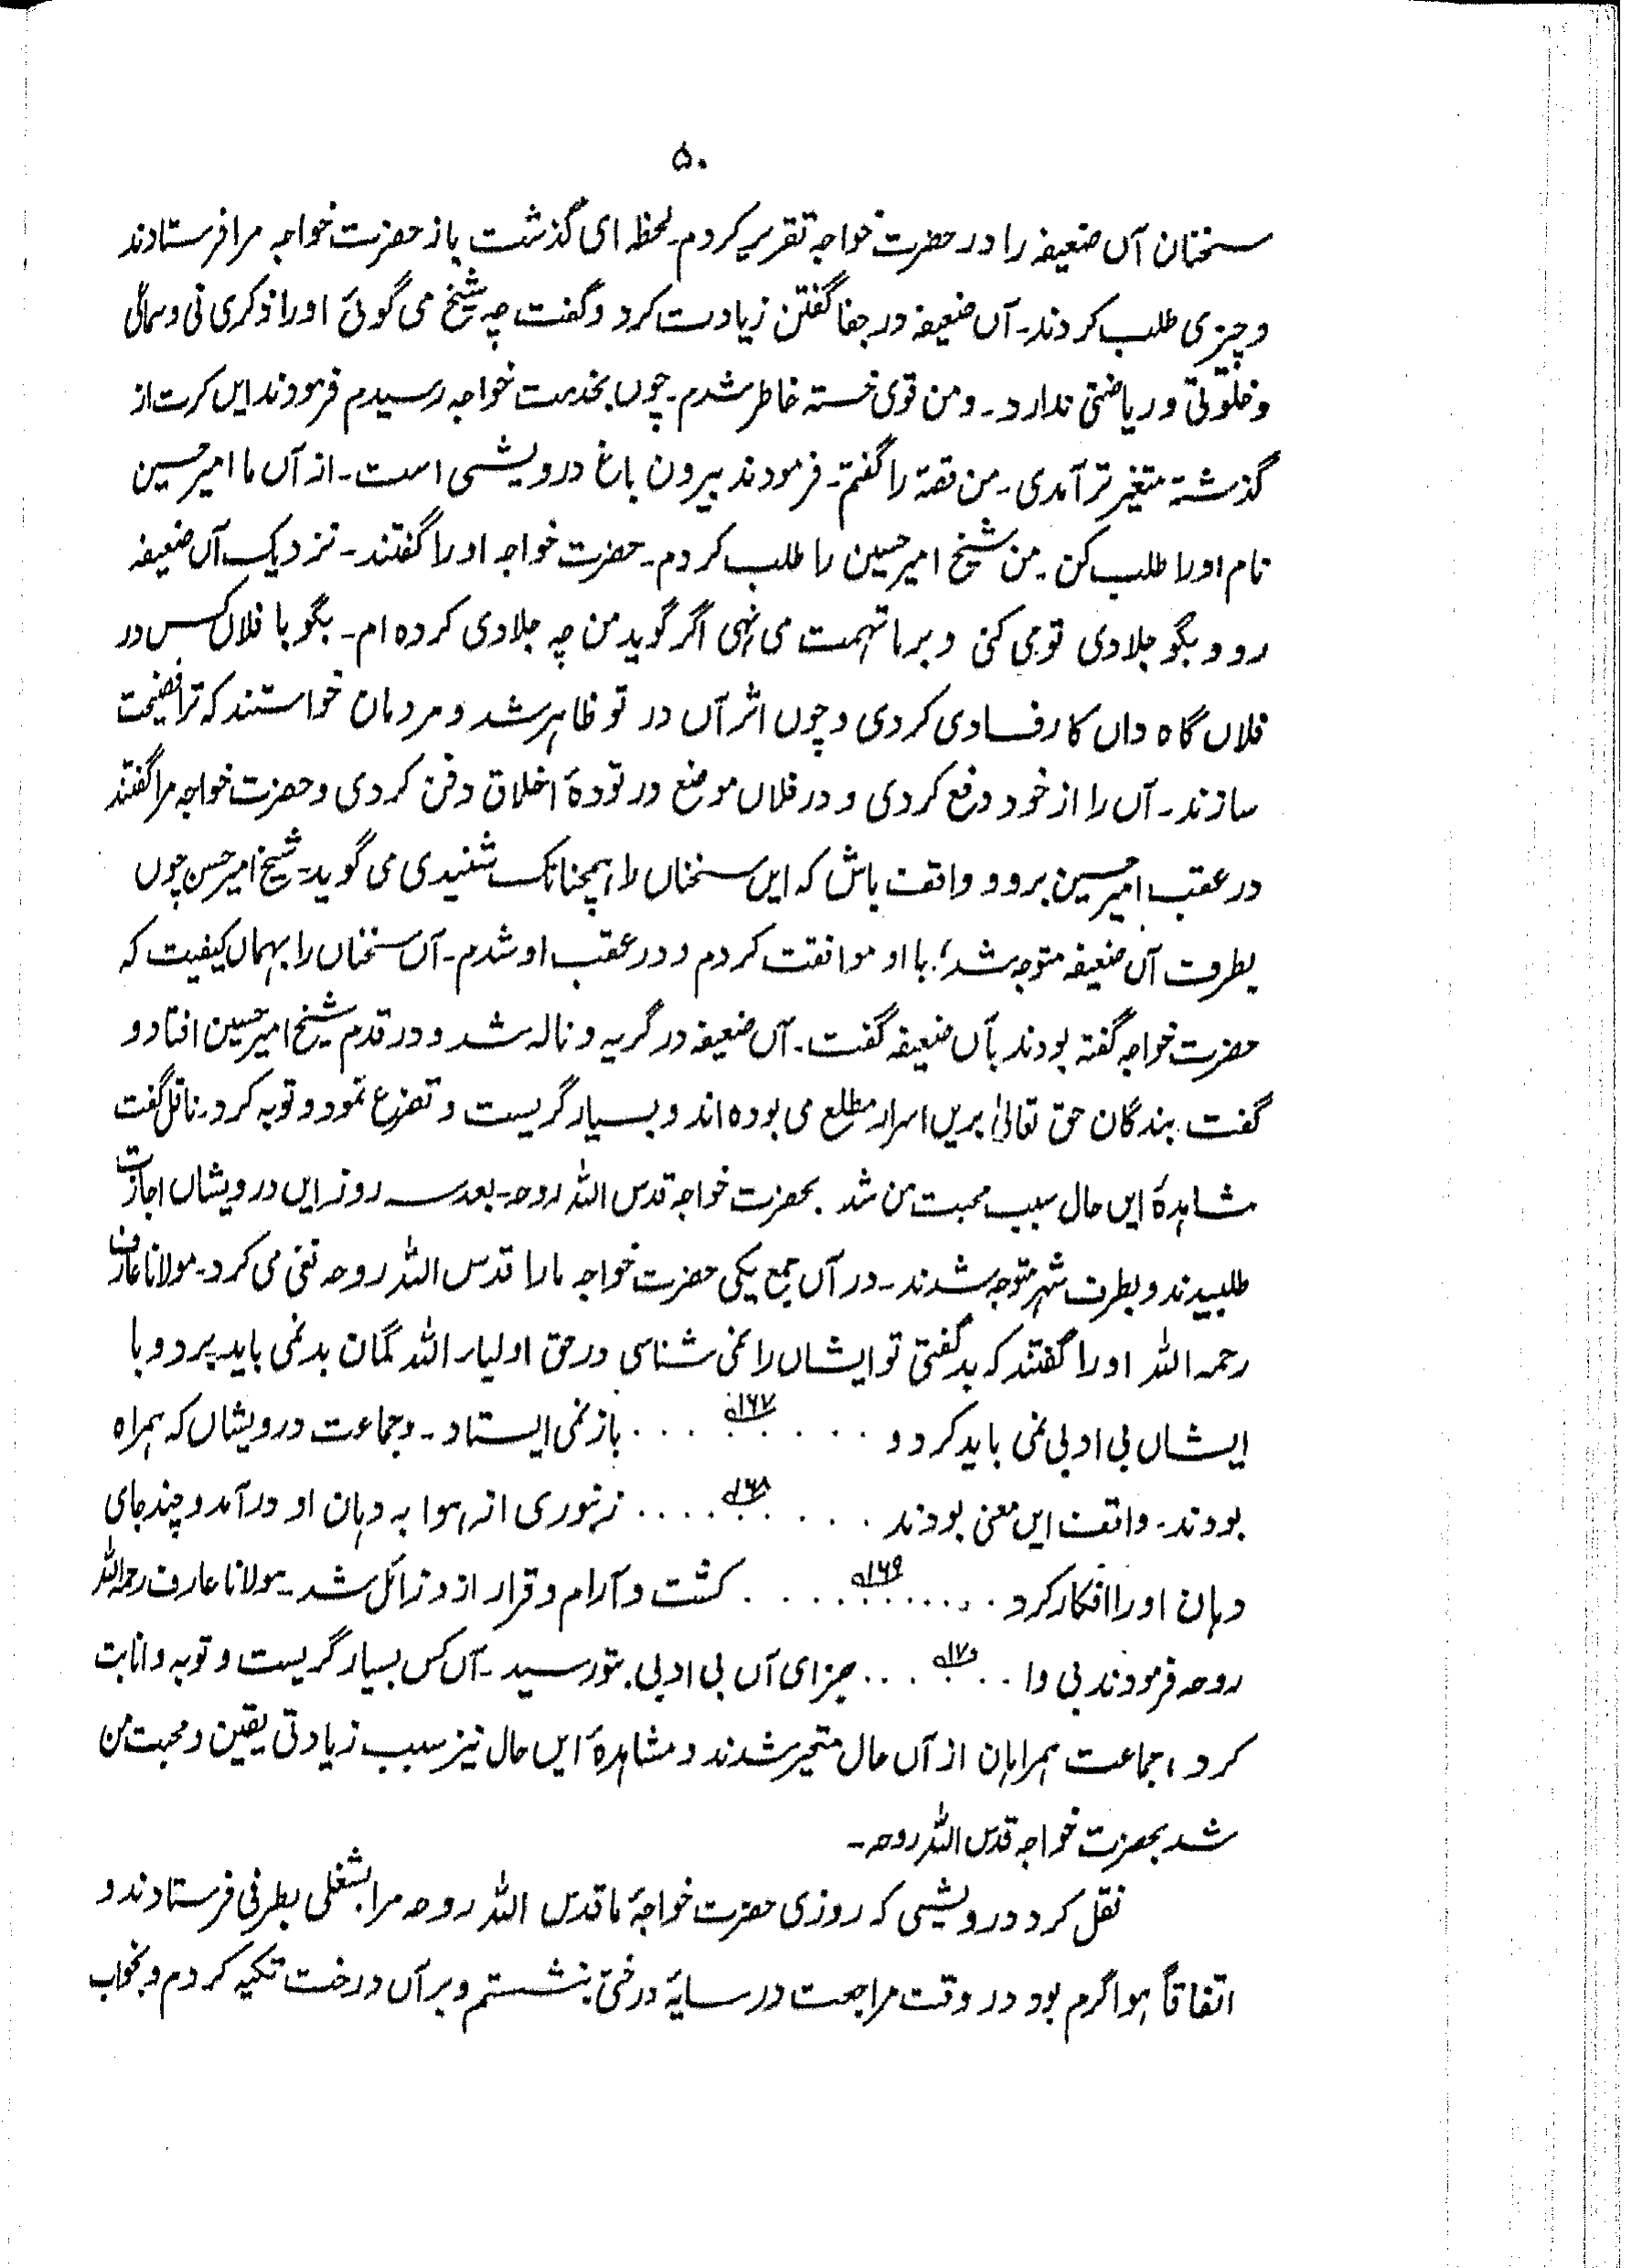 ۵۰
سخنان آں ضعیفہ را در حضرت خواجہ تقریر کردم۔ لحظہ ای گذشت باز حضرت خواجہ مرا فرستادند
و چیزی طلب کردند۔ آں ضعیفہ در جفا گفتن زیادت کرد و گفت چہ شیخ می گوئی او را ذکری نی و سماعی
و خلوتی و ریاضتی ندارد۔ و من قوی خستہ خاطر شدم۔ چوں بخدمت خواجہ رسیدم فرمودند ایں کرت از
گذشتہ متغیر تر آمدی۔ من قصۃ را گفتم۔ فرمودند بیرون باغ درویشی است۔ از آں ما امیر حسین
نام او را طلب کن۔ من شیخ امیر حسین را طلب کردم۔ حضرت خواجہ او را گفتند۔ نزدیک آں ضعیفہ
رو و بگو جلادی تو می کنی و بر ما تہمت می نہی اگر گوید من چہ جلادی کردہ ام۔ بگو با فلاں کس در
فلاں گاہ داں کار فسادی کردی و چوں اثر آں در تو ظاہر شد و مردمان خواستند کہ ترا فضیحت
سازند۔ آں را از خود دفع کردی و در فلاں موضع در تودۂ اخلاق دفن کردی و حضرت خواجہ مرا گفتند
در عقب امیر حسین برو و واقف باش کہ ایں سخناں را ہمچنانک شنیدی می گوید۔ شیخ امیر حسن چوں
بطرف آں ضعیفہ متوجہ شد، با او موافقت کردم و در عقب او شدم۔ آں سخناں را بہماں کیفیت کہ
حضرت خواجہ گفتہ بودند بآں ضعیفہ گفت۔ آں ضعیفہ در گریہ و نالہ شد و در قدم شیخ امیر حسین افتاد و
گفت بندگان حق تعالیٰ بریں اسرار مطلع می بودہ اند و بسیار گریست و تضرع نمود و توبہ کرد۔ ناقل گفت
مشاہدۂ ایں حال سبب محبت من شد بحضرت خواجہ قدس اللہ روحہ۔ بعد سہ روز ایں درویشاں اجازت
طلبیدند و بطرف شہر متوجہ شدند۔ در آں جمع یکی حضرت خواجہ ما را قدس اللہ روحہ نفی می کرد۔ مولانا عارف
رحمہ اللہ او را گفتند کہ بد گفتی تو ایشاں را نمی شناسی در حق اولیاء اللہ گمان بد نمی باید برد و با
ایشاں بی ادبی نمی باید کرد و . . . . ۱۶۷ . . . . باز نمی ایستاد۔ و جماعت درویشاں کہ ہمراہ
بودند۔ واقف ایں معنی بودند . . . . ۱۶۸ . . . . زنبوری از ہوا بہ دہان او درآمد و چند جای
دہان او را افکار کرد . . . . ۱۶۹ . . . . گشت و آرام و قرار از و زائل شد۔ مولانا عارف رحمہ اللہ
روحہ فرمودند بی وا . . . ۱۷۰ . . . جزای آں بی ادبی بتو رسید۔ آں کس بسیار گریست و توبہ و انابت
کرد، جماعت ہمراہان از آں حال متحیر شدند و مشاہدۂ ایں حال نیز سبب زیادتی یقین و محبت من
شد بحضرت خواجہ قدس اللہ روحہ۔
نقل کرد درویشی کہ روزی حضرت خواجۂ ما قدس اللہ روحہ مرا بشغلی بطرفی فرستادند و
اتفاقاً ہوا گرم بود در وقت مراجعت در سایۂ درختی بنشستم و بر آں درخت تکیہ کردم و بخواب